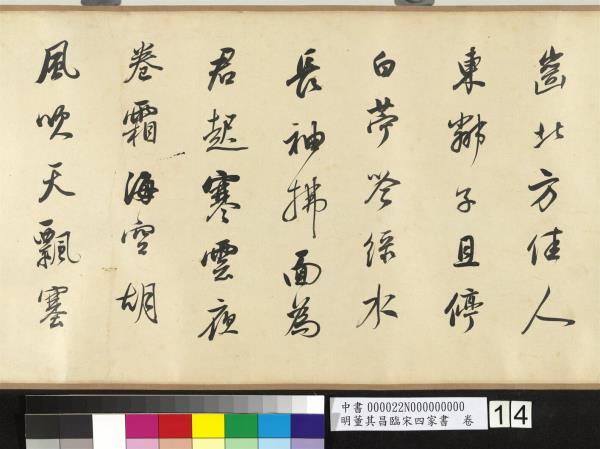 齒北方佳人
東鄰子且停
白苧綠水
長袖拂面為
君起寒雲夜
卷霜海空胡
風吹天飄塞
中書 000022N000000000
明董其昌臨宋四家書 卷
14